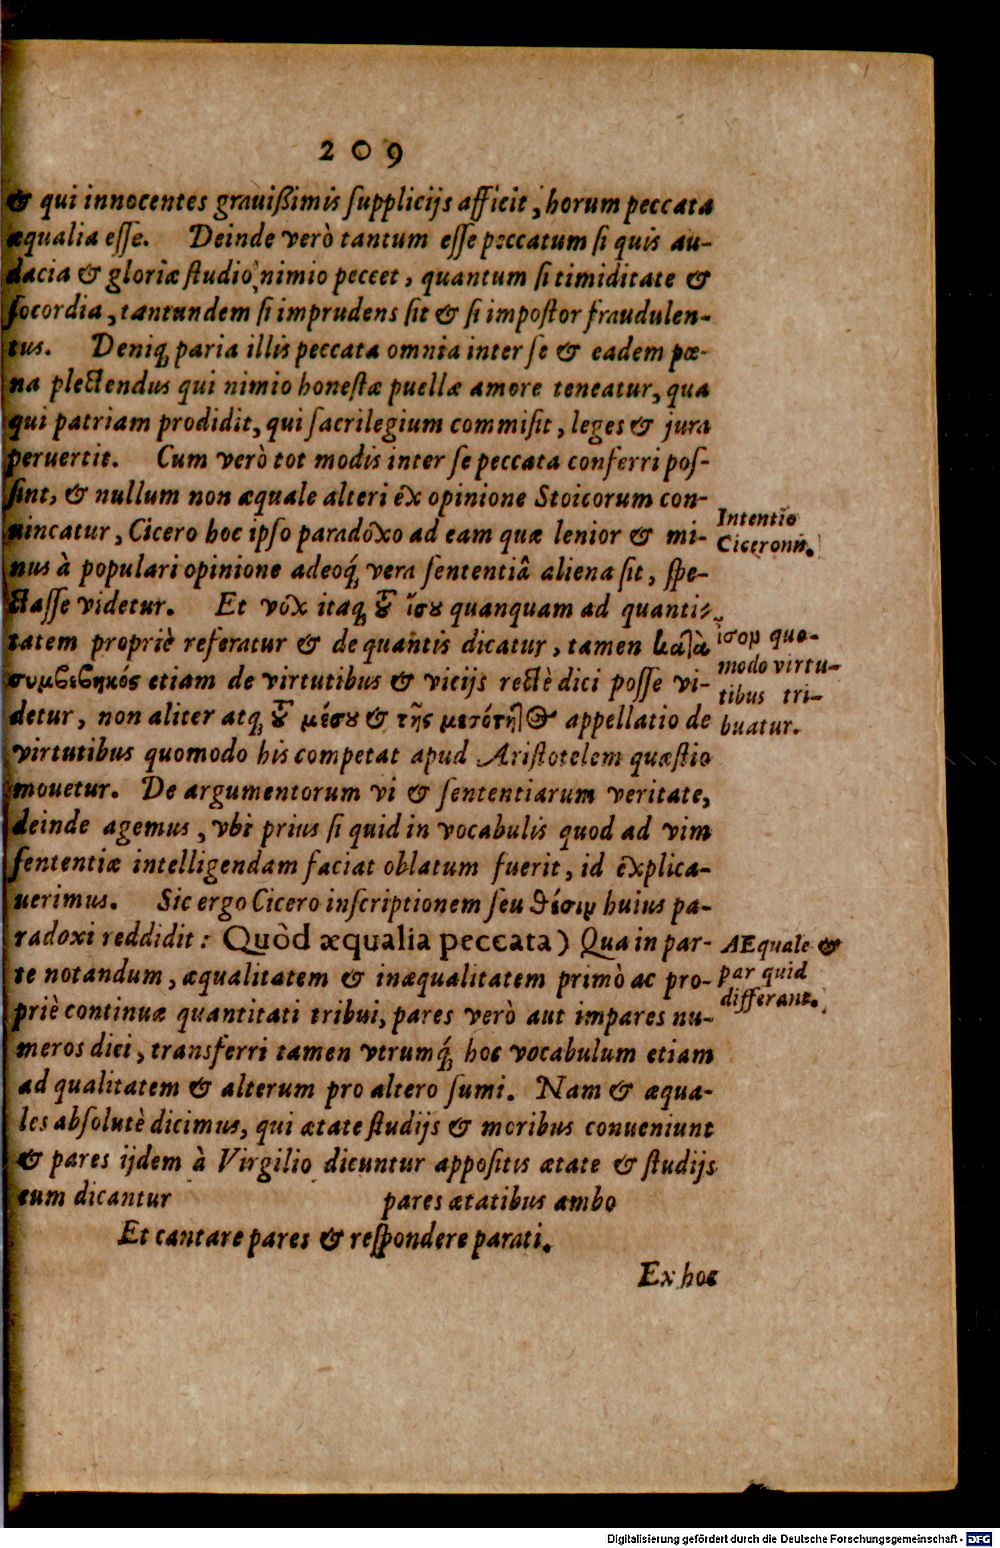 209
& qui innocentes grauißimis ſupplicijs afficit, horum peccata
æqualia eſſe. Deinde verò tantum eſſe peccatum ſi quis au-
dacia & gloriæ ſtudio nimio peccet, quantum ſi timiditate &
ſocordia, tantundem ſi imprudens ſit & ſi impoſtor fraudulen-
tus. Deniq́; paria illis peccata omnia inter ſe & eadem pœ-
na plectendus qui nimio honeſtæ puellæ amore teneatur, qua
qui patriam prodidit, qui ſacrilegium commiſit, leges & jura
peruertit. Cum verò tot modis inter ſe peccata conferri poſ-
ſint, & nullum non æquale alteri ex opinione Stoicorum con-
uincatur, Cicero hoc ipſo paradoxo ad eam quæ lenior & mi-
Intentio
Ciceronis.
nus à populari opinione adeoq́; vera ſententiâ aliena ſit, ſpe-
ctaſſe videtur. Et vox itaq́; τȣ͂ ἴσȣ quanquam ad quanti-
tatem propriè referatur & de quantis dicatur, tamen καταὰ
ἴσον quo-
modo virtu-
tibus tri-
buatur.
συμβεβηκός etiam de virtutibus & vicijs rectè dici poſſe vi-
detur, non aliter atq́; τȣ͂ μέσȣ & τῆς μεσότητ⊙ appellatio de
virtutibus quomodo his competat apud Ariſtotelem quæſtio
mouetur. De argumentorum vi & ſententiarum veritate,
deinde agemus, vbi prius ſi quid in vocabulis quod ad vim
ſententiæ intelligendam faciat oblatum fuerit, id explica-
uerimus. Sic ergo Cicero inſcriptionem ſeu θέσιν huius pa-
radoxi reddidit: Quòd æqualia peccata) Qua in par-
AEquale &
par quid
differant.
te notandum, æqualitatem & inæqualitatem primò ac pro-
priè continuæ quantitati tribui, pares verò aut impares nu-
meros dici, transferri tamen vtrumq́; hoc vocabulum etiam
ad qualitatem & alterum pro altero ſumi. Nam & æqua-
les abſolutè dicimus, qui ætate ſtudijs & moribus conueniunt
& pares ijdem à Virgilio dicuntur appoſitis ætate & ſtudijs
cum dicantur pares ætatibus ambo
Et cantare pares & reſpondere parati.
Ex hoc
Digitalisierung gefördert durch die Deutsche Forschungsgemeinschaft - DFG